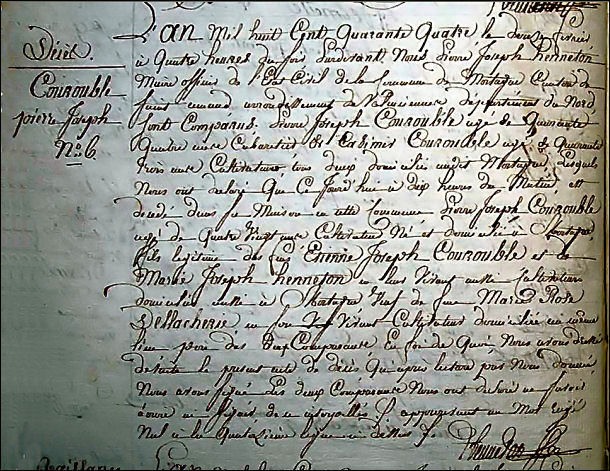 Décès.
Courouble
pierre Joseph
N.º 6.
L'an Mil huit Cent Quarante Quatre le deux fevrier
à Quatre heures du soir Pardevant Nous Pierre Joseph henneton
Maire officier de l'Etat Civil de la Commune de Mortagne Canton de
Saint amand arrondissement de Valenciennes departement du Nord
Sont Comparus Pierre Joseph Courouble agé de Quarante
Quatre ans Cabaretier et Courouble agé de Quarante
trois ans Cultivateur, tous deux domiciliés audit Mortagne Lesquels
Nous ont declaré Que Ce Jourd'hui à dix heures du Matin est
decedé dans sa Maison en cette Commune Pierre Joseph Courouble
agé de Quatre Vingt ans Cultivateur Né et domicilié à Mortagne,
fils legitime des feus Etienne Joseph Courouble et de
Marie Joseph henneton en leur Vivant aussi Cultivateurs
domiciliés aussi à Mortagne Veuf de feue Marie Rose
Dellacherie en son Vivant Cultivatrice domiciliée au même
lieu pere des deux Comparants En foi de Quoi Nous avons
le present acte de décès Que après lecture par Nous donnée
Nous avons signé Les deux Comparants Nous ont declaré ne savoir
ecrire de ce interpellés approuvant un Mot rayé
Nul à la Quinzieme ligne ci dessus
PhenneTon
L'an